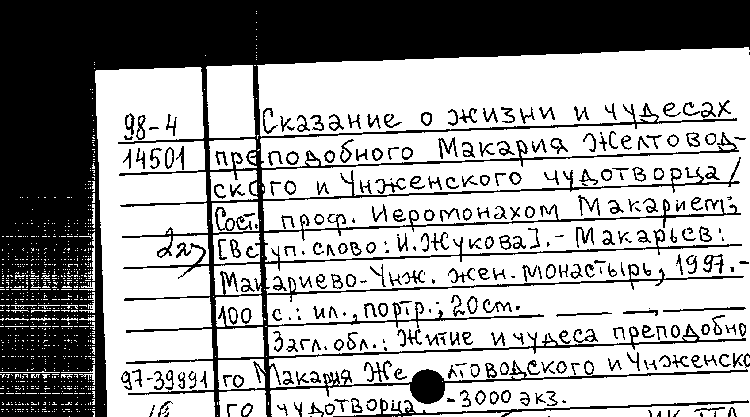 98-4 Сказание о жизни и чудесах
14501 преподобного Макария Желтовод-
ского и Унженского чудотворца /
Сост. проф. Иеромонахом Макарием;
2дз [Вступ. слово: И. Жукова]. - Макарьев:
Макариево-Унж. жен. монастырь, 1997. -
100 с.: ил., портр.; 20 см.
Загл. обл.: Житие и чудеса преподобно
97-39891 го Макария Желтоводского и Унженско
го чудотворца. - 3000 экз.